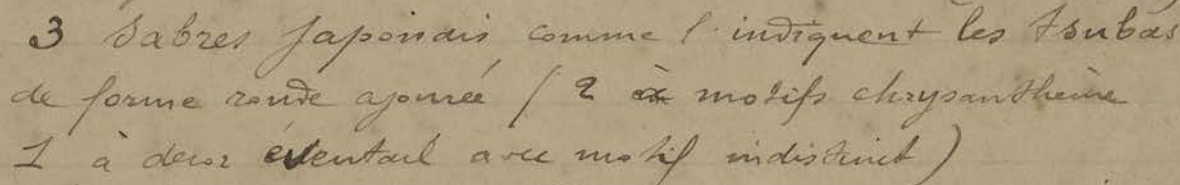 3 Sabres Japonais comme l'indiquent les tsubas
de forme ronde ajourée (2 à motifs chrysanthème
1 à décor éventail avec motif indistinct)